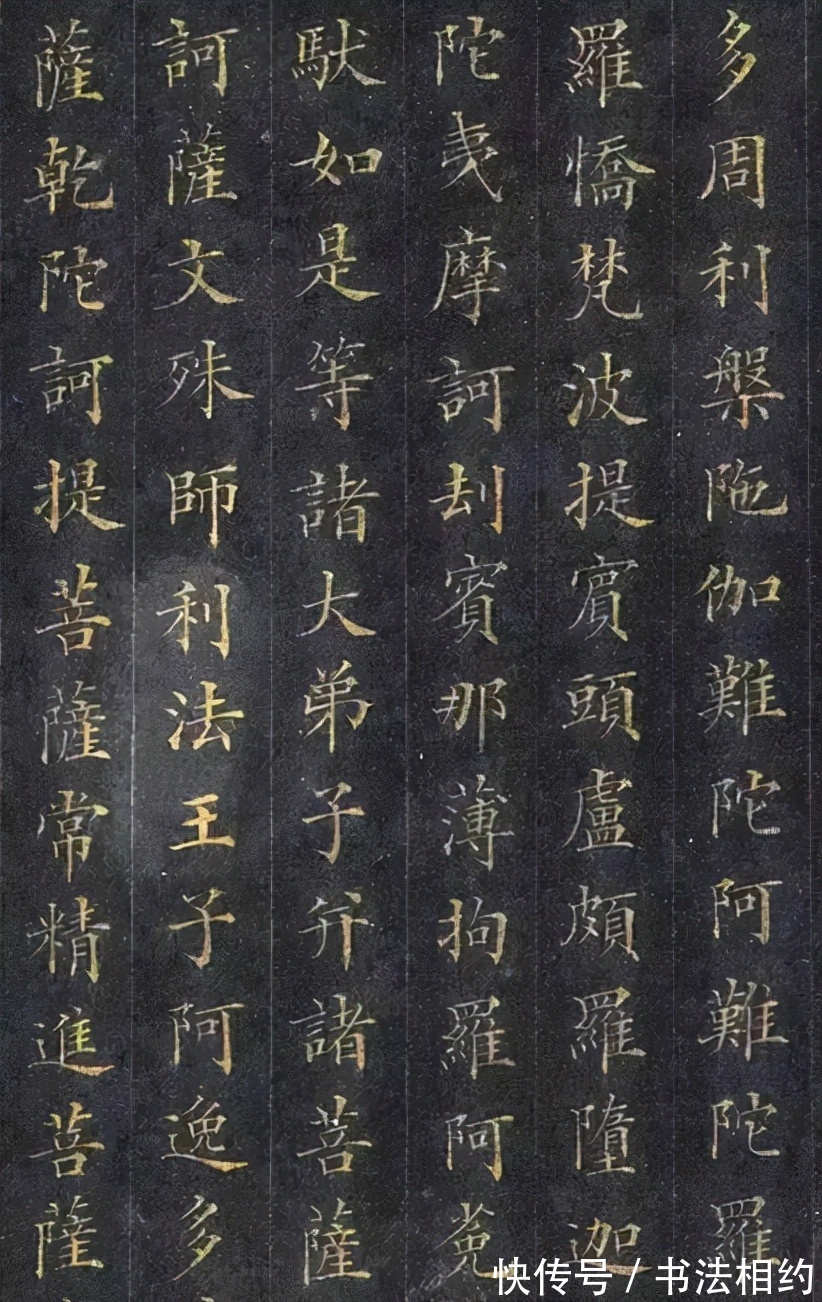 多周利槃陁伽難陀阿難陀羅
羅憍梵波提賓頭盧頗羅墮迦
陀夷摩訶刦賓那薄拘羅阿㝹
馱如是等諸大弟子并諸菩薩
訶薩文殊師利法王子阿逸多
薩乾陀訶提菩薩常精進菩薩
快传号 / 书法相约